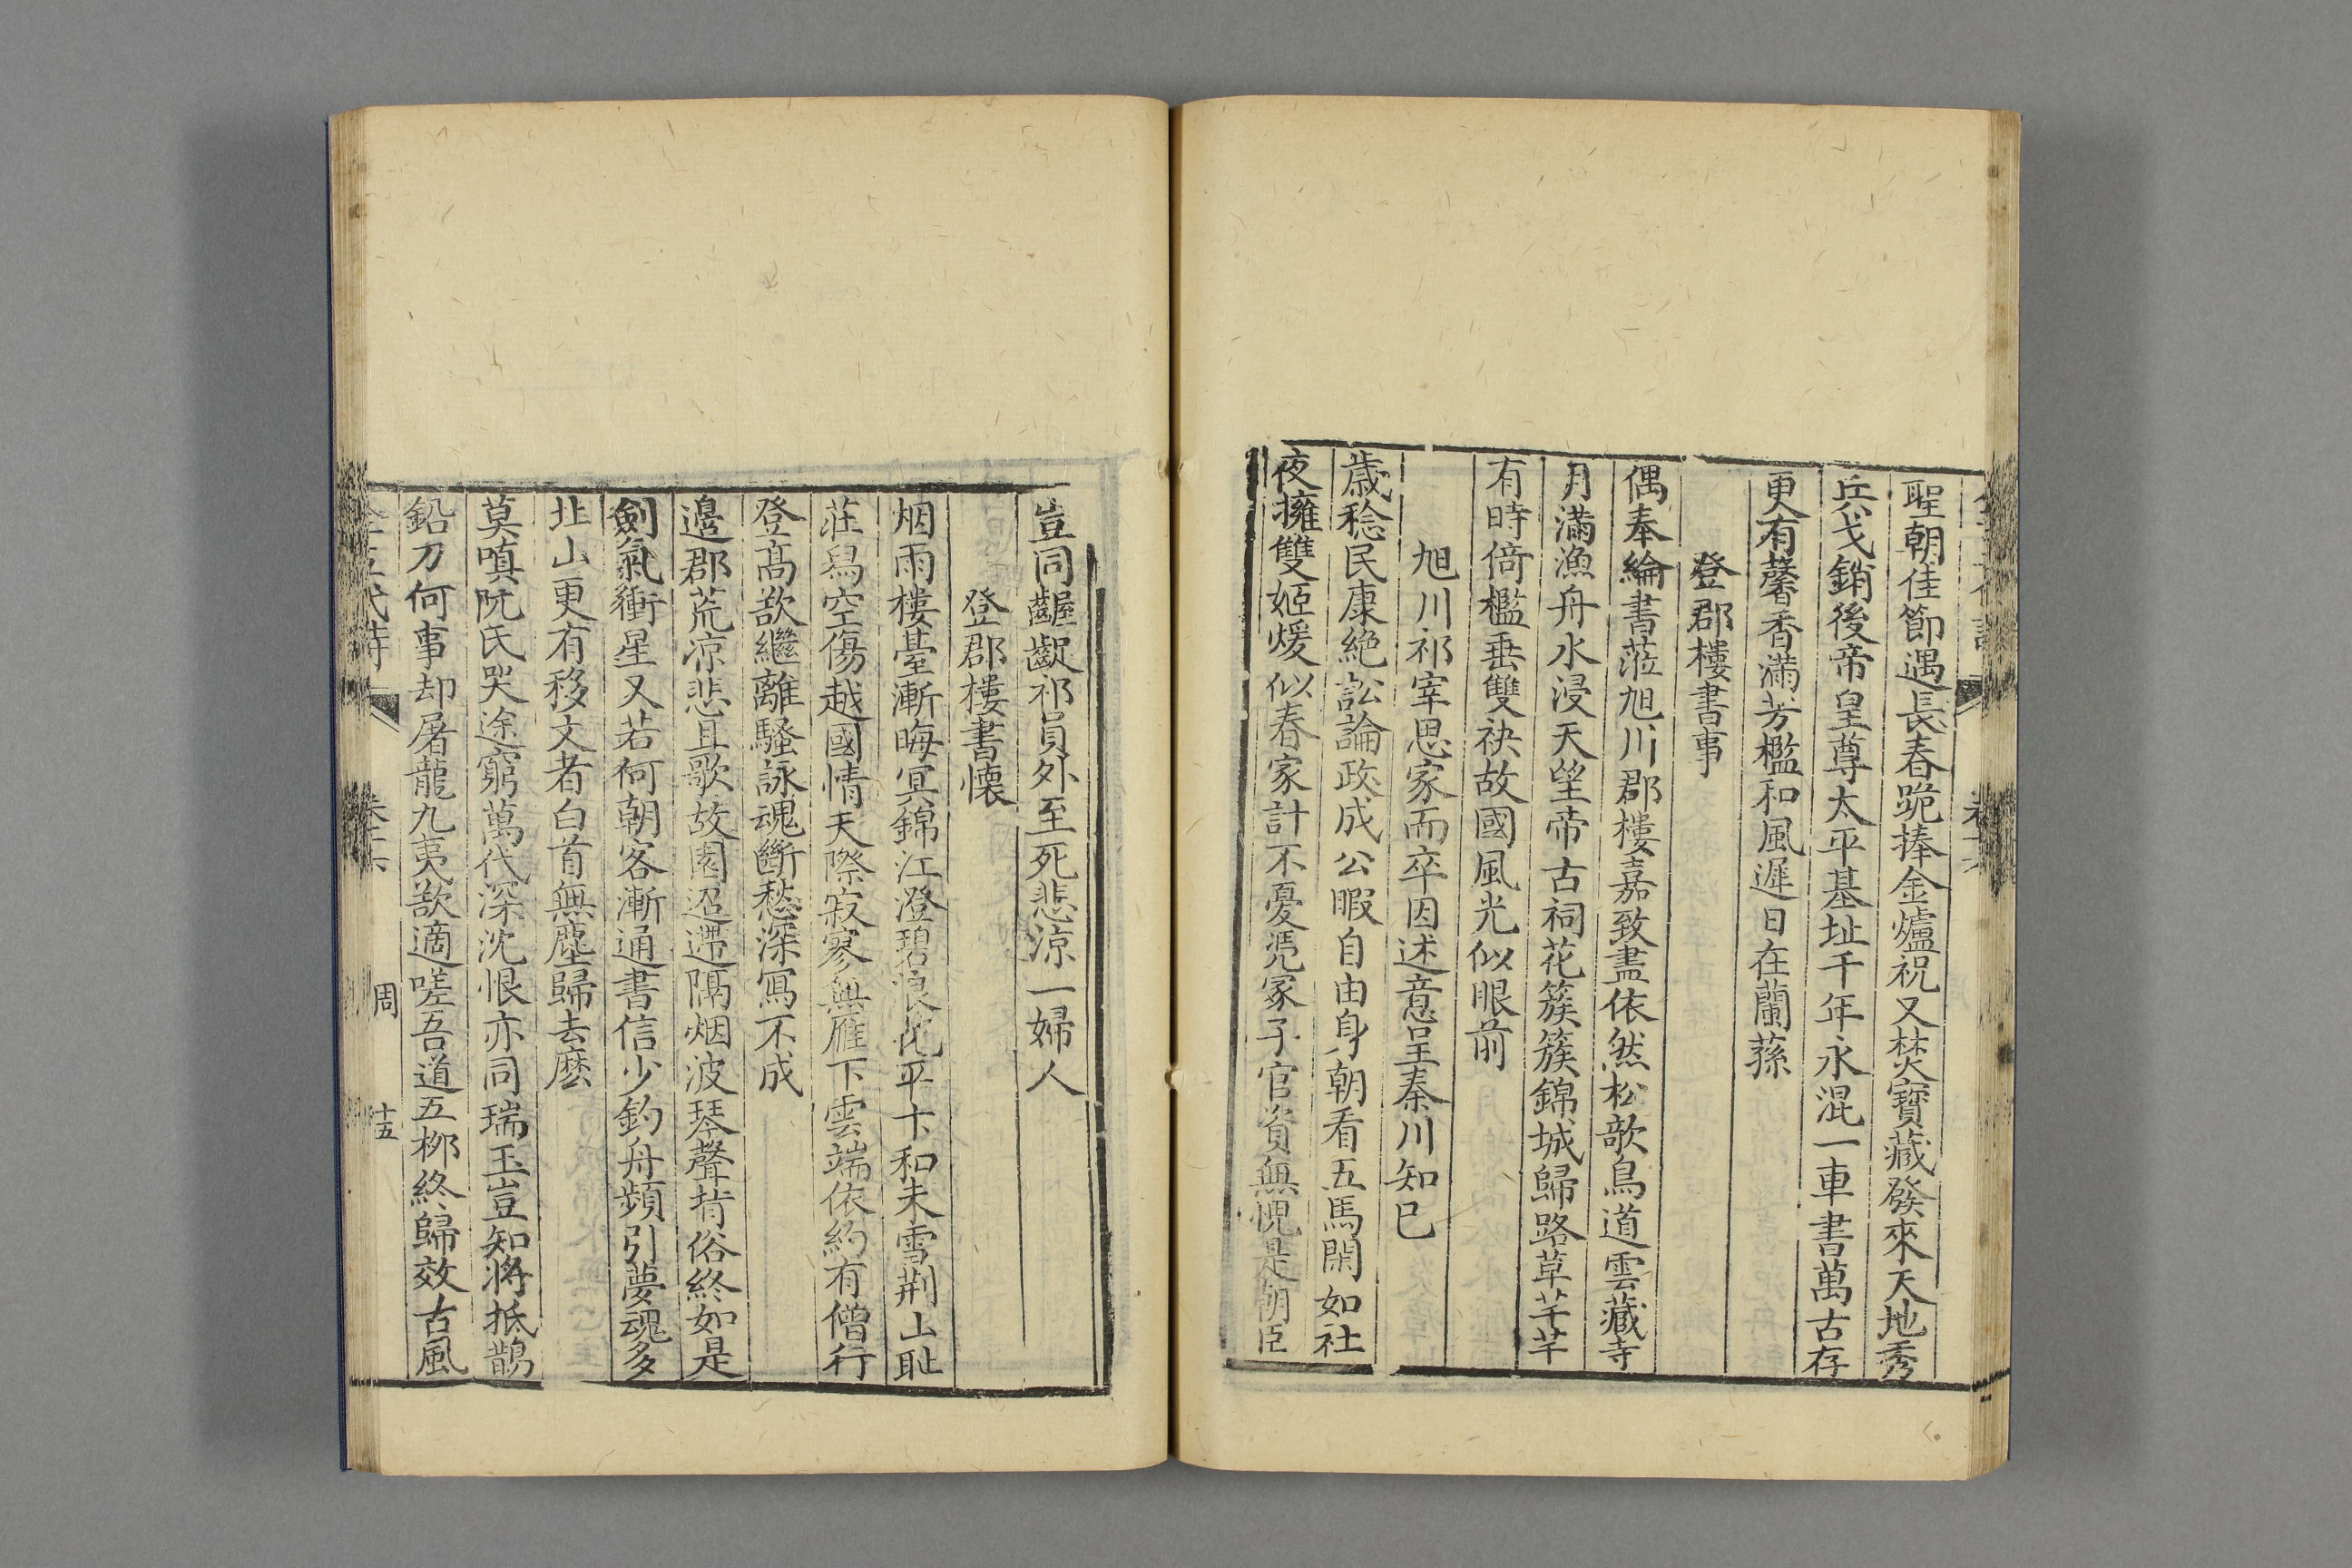 聖朝佳節遇長春跪捧金爐祝又焚寶藏發來天地秀
兵戈銷後帝皇尊太平基址千年永混一車書萬古存
更有馨香滿芳檻和風遲日在蘭蓀
登郡樓書事
偶奉綸書蒞旭川郡樓嘉致盡依然松歌鳥道雲藏寺
月滿漁舟水浸天望帝古祠花簇簇錦城歸路草芊芊
有時倚檻垂雙袂故國風光似眼前
旭川祁宰思家而卒因述意呈秦川知己
歲稔民康絶訟論政成公暇自由身朝看五馬閑如社
夜擁雙姬煖似春家計不憂凭冢子官資無愧是朝臣
豈同齷齪祁員外至死悲涼一婦人
登郡樓書懷
烟雨樓臺漸晦冥錦江澄碧浪花平卞和未雪荆山耻
莊舄空傷越國情天際寂寥無雁下雲端依約有僧行
登髙欲繼離騷詠魂斷愁深寫不成
邊郡荒凉悲且歌故園迢遰隔烟波琴聲背俗終如是
劍氣衝星又若何朝客漸通書信少釣舟頻引夢魂多
北山更有移文者白首無塵歸去麽
莫嗔阮氏哭途窮萬代深沈恨亦同瑞玉豈知將抵鵲
鉛刀何事却屠龍九夷欲適嗟吾道五栁終歸效古風
周
十五